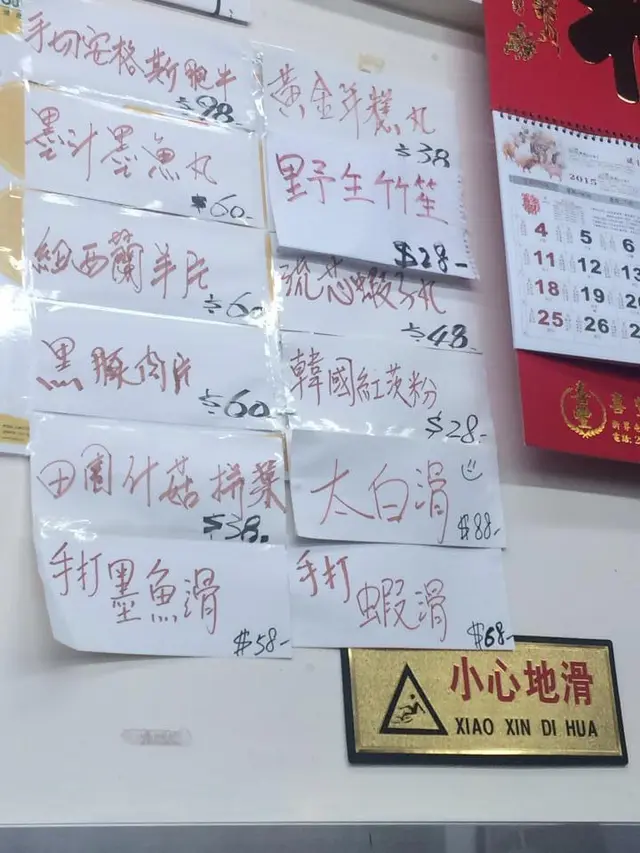 手切安格斯肥牛
$98
墨汁墨魚丸
$60-
紐西蘭羊片
$60
黑豚肉片
$60
田園什菇拼菜
$38.
手打墨魚滑
$58-
黃金年糕丸
$38
野生竹笙
$28-
流芯蝦子丸
$48
韓國紅茨粉
$28-
太白滑
$88-
手打蝦滑
$68-
2015
4 5 6
11 12 13
18 19 20
25 26 27
小心地滑
XIAO XIN DI HUA